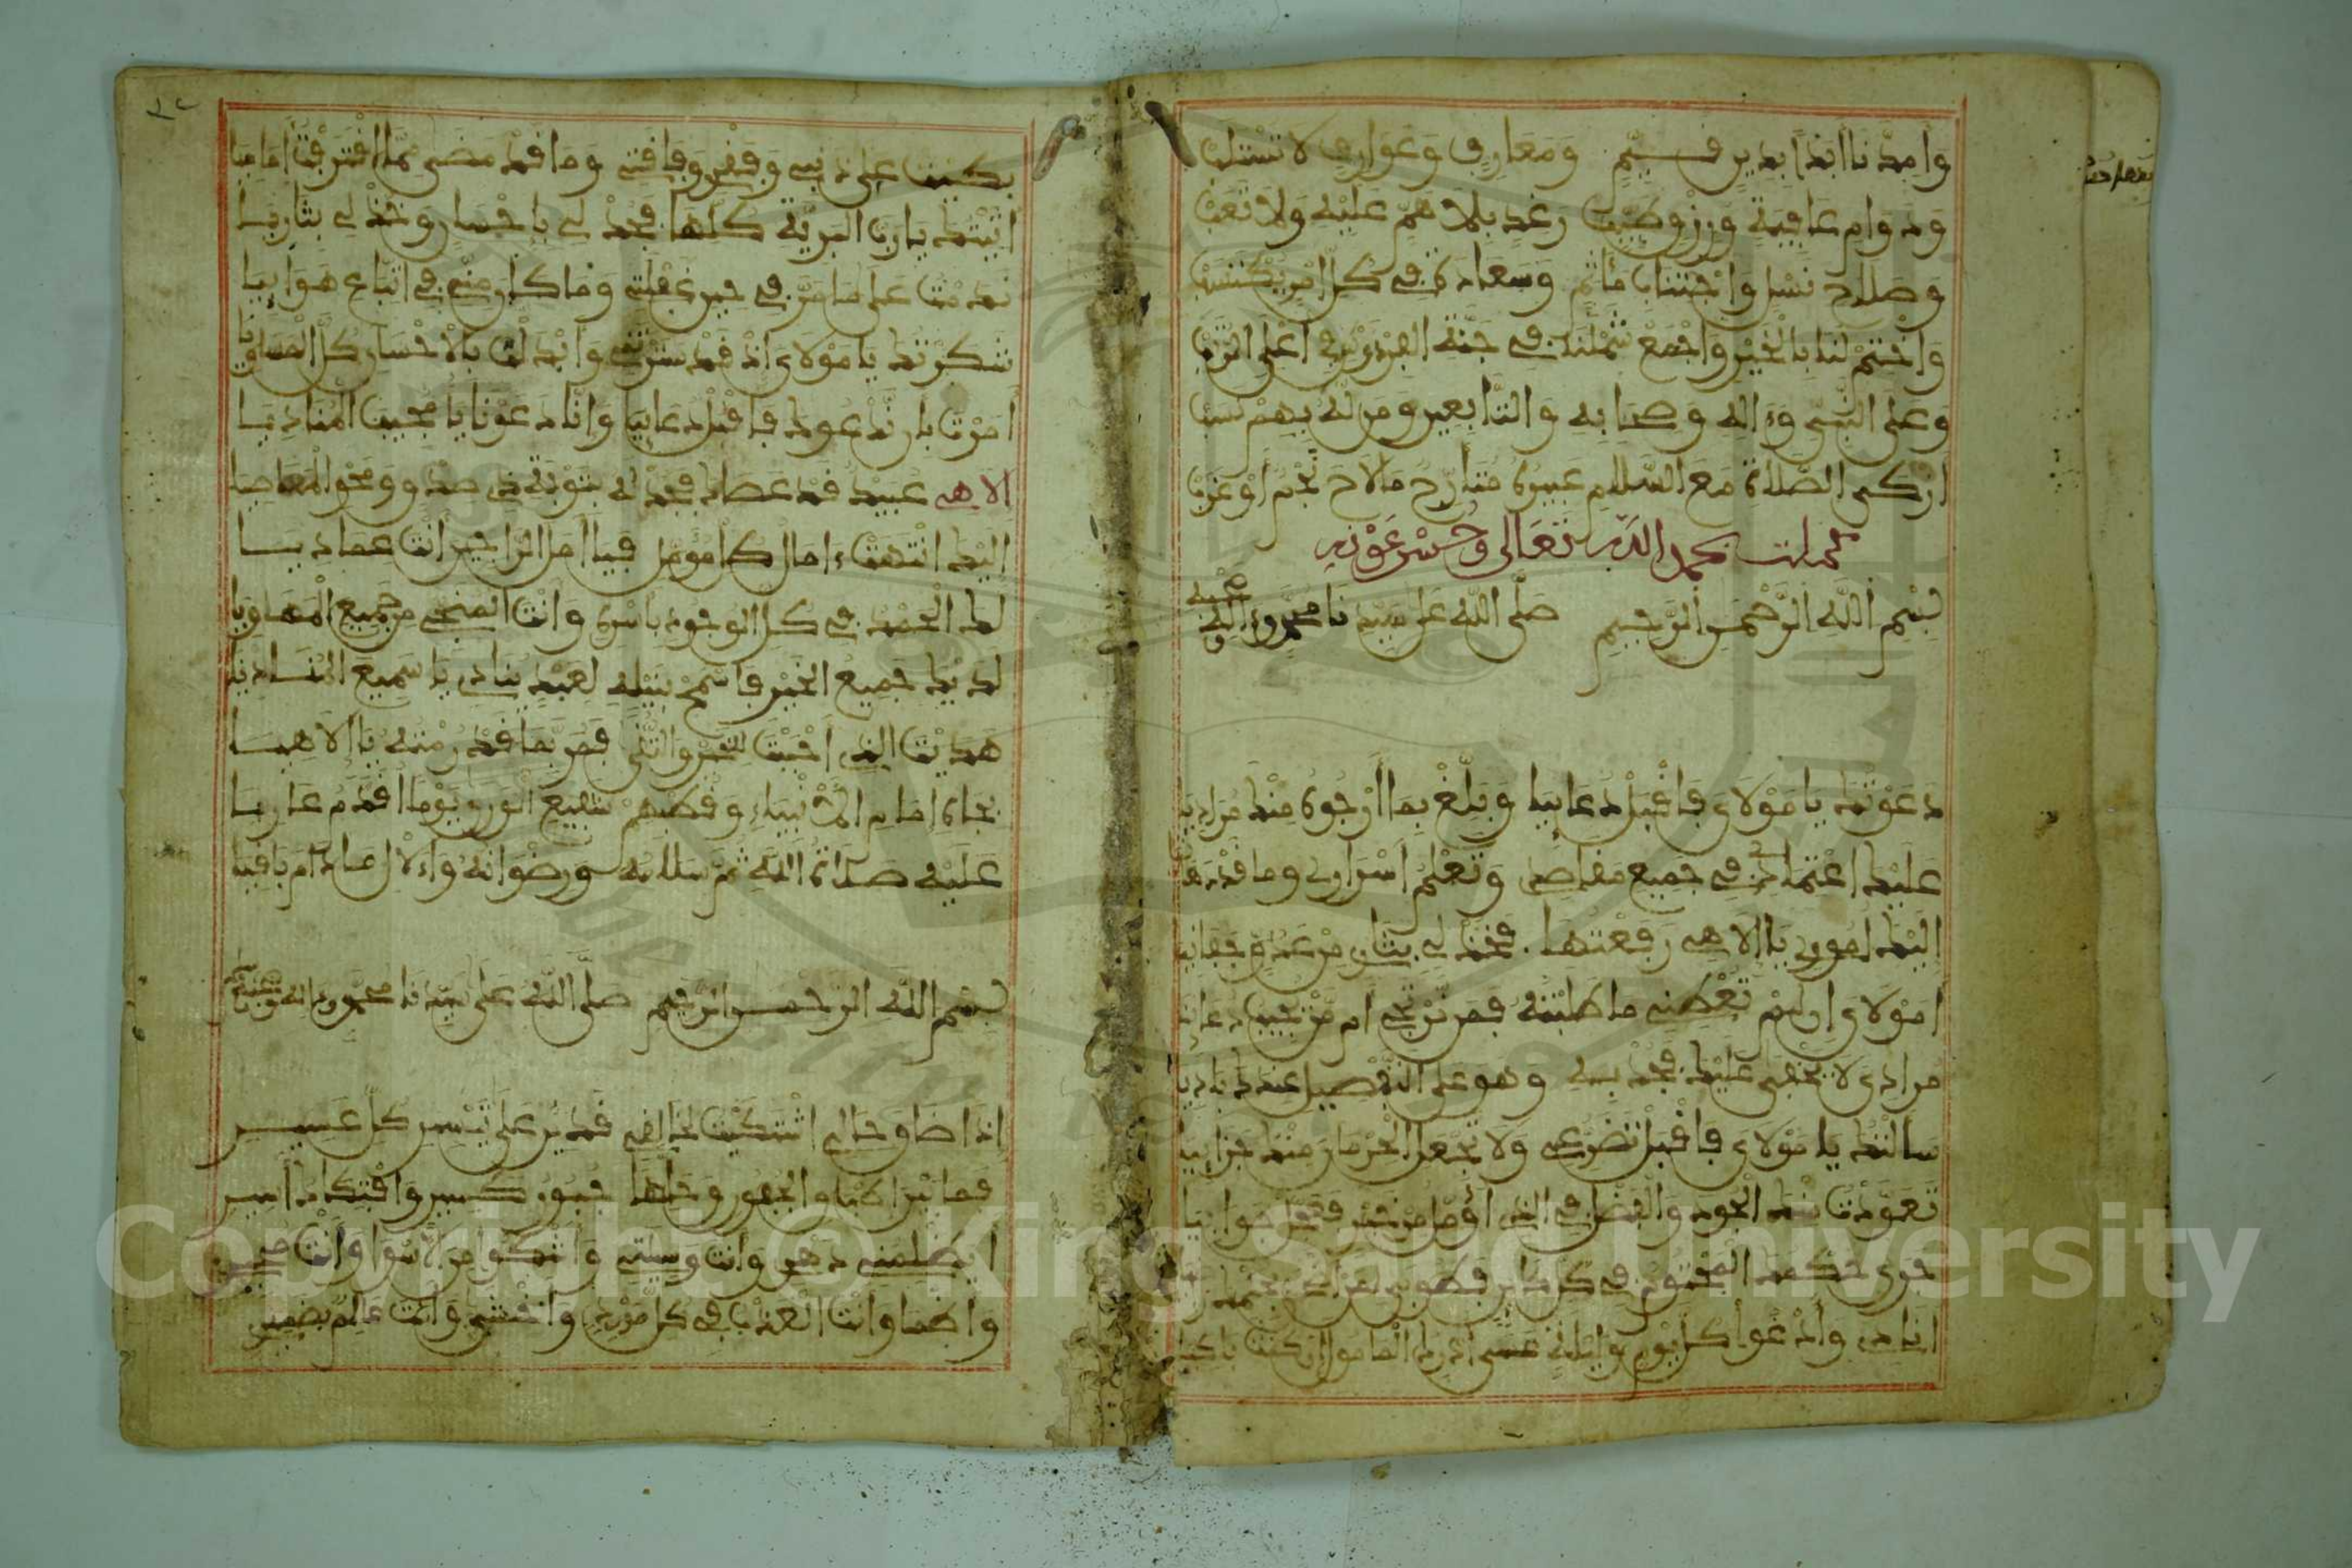 وَأمِدْنَا أبَدًا بِدِينٍ قَيِّمٍ وَمَعَارِفٍ وَعَوَارِفٍ لَا تُسْتَلَبْ
وَدَوَامِ عَافِيَةٍ وَرِزْقٍ طَيِّبٍ رَغَدٍ بِلَا هَمٍّ عَلَيْهِ وَلَا تَعَبْ
وَصَلَاحِ نَسْلٍ وَاجْتِنَابِ مَآثِمٍ وَسَعَادَةٍ فِي كُلِّ أمْرٍ يُكْتَسَبْ
وَاخْتِمْ لَنَا بِالْخَيْرِ وَاجْمَعْ شَمْلَنَا فِي جَنَّةِ الْفِرْدَوْسِ فِي أعْلَى الرُّتَبْ
وعلى النبي وءاله وصحابه والتابعين ومن له بهم نسب
أزكى الصلاة مع السلام عبيره متأرج ما لاح نجم أو غرب
كملت بحمد الله تعالى وحسن عونه
بسم الله الرحمن الرحيم صلى الله على سيدنا محمد وءاله وصحبه
دعوتك يا مولاي فاقبل دعاييا وبلغ بما أرجوه منك مراديا
عليك اعتمادي في جميع مقاصدي وتعلم أسراري وما قد
إليك أموري يا إلاهي رفعتها فخذ لي بثأري من عدو
أمولاي إن لم تعطني ما طلبته فمن نرتجي أم من يجيب
مرادي لا يخفى عليك فجد به وهو على التفصيل عندك باديا
سألتك يا مولاي فاقبل تضرعي ولا تجعل الحرمان منك جزاييا
تعودت منك الجود والفضل في الذي أؤمل من
جرى حكمك المحتوم في كل كاين
أنادي وأدعوا كل يوم وليلة عسى أدرك المأمول إن كنت باكيا
بكيت على ذنبي وفقري وفاقتي وما قد مضى مما اقترفت أماميا
أتيتك يا رب البرية كلها فجد لي بإحسان وخذ لي بثاريا
ندمت على ما مر في حين غفلتي وما كان مني في اتباع هوايا
شكرتك يا مولاي إذ قد سترتني وأبدلت بالإحسان كل المساويا
أمرت بأن ندعوك فاقبل دعاييا وإنا دعونا يا مجيب المناديا
إلاهي عبيد قد عصاك فجد له بتوبة ذي صدق ومحو المعاصيا
إليك انتهت ءامال كل مؤمل فيا أمل الراجين أنت عماديا
لك الحمد في كل الوجود بأسره وأنت المنجي من جميع المهاويا
لديك جميع الخير فاسمح بنيله لعبد ينادي يا سميع المناديا
هديت الذي أحببت للخير والتقى فمن بما قد رمته يا إلاهيا
بجاه إمام الأنبياء وقطبهم شفيع الورى يوما اقدم عاريا
عليه صلاة الله ثم سلامه ورضوانه والآل ما دام باقيا
بسم الله الرحمن الرحيم صلى الله على سيدنا محمد وءاله وصحبه
إذا ضاق حالي اشتكيت لخالقي قدير على تيسير كل عسير
فما بين إطباق الجفون وحلها جبور كسير وافتكاك أسير
أيظلمني دهر وأنت وسيلتي وأشكوا من الأسوا وأنت مجير
وأظما وأنت العذب في كل مورد وأختشي وأنت عالم بضمير